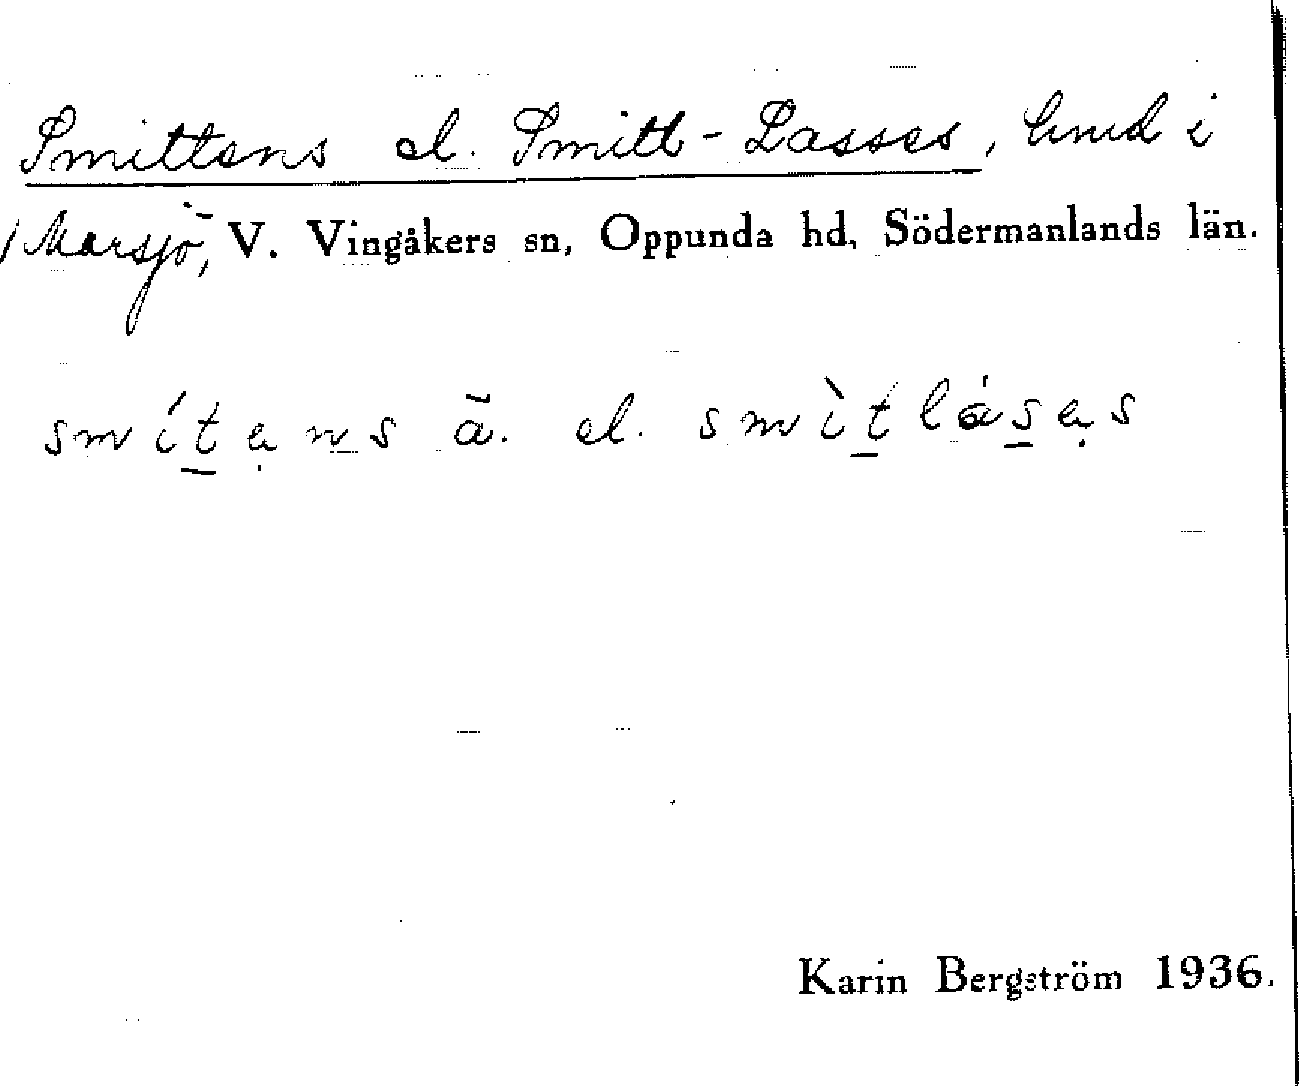 Smittens el. Smitt-Lasses, lund i
Marsjö, V. Vingåkers sn, Oppunda hd, Södermanlands län.
smít̲ẹn̲s ā. el. smìt̲lás̲ẹs
Karin Bergström 1936.